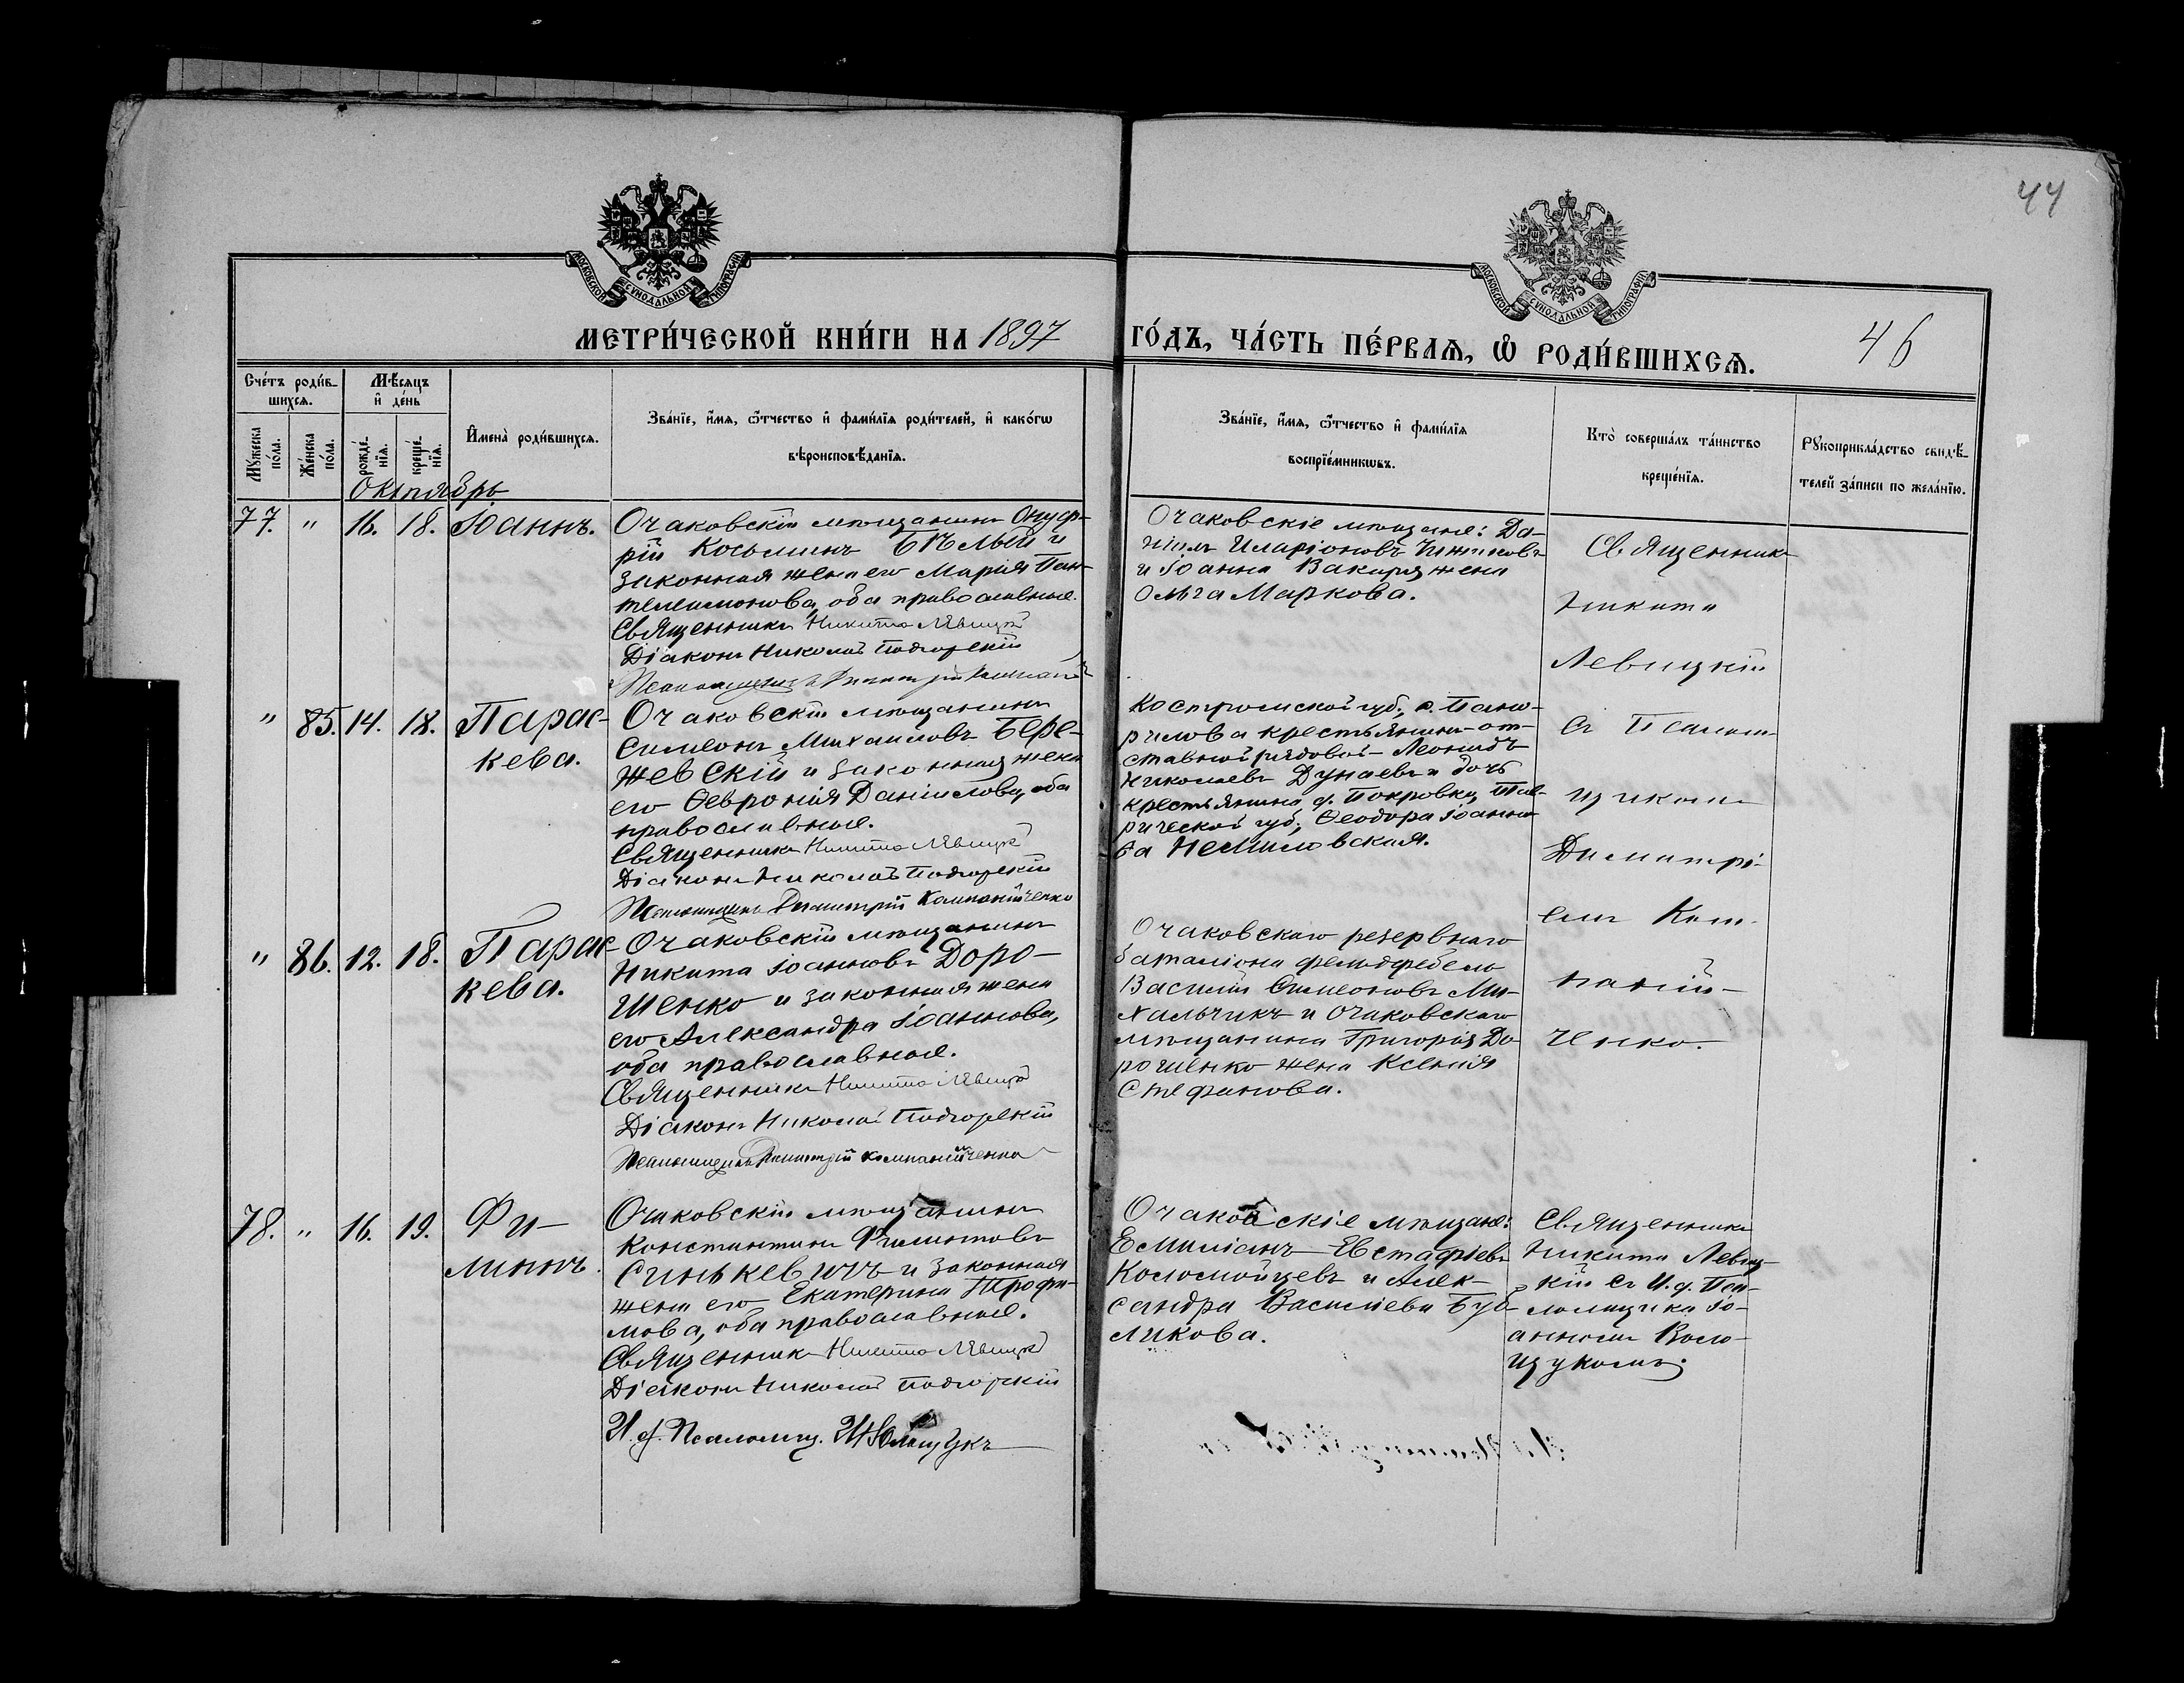 44
МОСКОВСКОЙ СѴНОДАЛЬНОЙ ТИПОГРАФІИ
МОСКОВСКОЙ СѴНОДАЛЬНОЙ ТИПОГРАФІИ
МЕТРИ́ЧЕСКОЙ КНИ́ГИ НА 1897 ГО́ДЪ, ЧА́СТЬ ПЕ́РВАѦ, Ѡ҆ РОДИ́ВШИХСѦ. 46
Сче́тъ роди́в-
шихсѧ.
Мꙋ́жеска по́ла.
Же́нска по́ла.
Мѣ́сѧцъ
и҆ де́нь
рожде́-
нїѧ.
креще́-
нїѧ.
И҆мена̀ роди́вшихсѧ.
Зва́нїе, и҆́мѧ, ѻ҆́тчество и҆ фами́лїѧ роди́телей, и҆ како́гѡ
вѣроисповѣ́данїѧ.
Зва́нїе, и҆́мѧ, ѻ҆́тчество и҆ фами́лїѧ
воспрїе́мникѡвъ.
Кто̀ соверша́лъ та́инство
креще́нїѧ.
Рꙋкоприкла́дство свидѣ́-
телей за́писи по жела́нїю.
Октябрь
77. " 16. 18. Іоаннъ.
Очаковскій мѣщанинъ Онуф-
рій Косьминъ Бѣлый и
законная жена его Марія Пан-
телеимонова, оба православные.
Священникъ Никита Лѣвицкій
Діаконъ Николай Подгорскій
Очаковскіе мѣщане: Да-
ніилъ Иларіоновъ Чижиковъ
и Іоанна Вакаря жена
Ольга Маркова.
Священникъ
Никита
Левицкій
съ Псалом-
щикомъ
Димитрі-
емъ Ком-
паній-
ченко.
" 85. 14. 18. Парас-
кева.
Очаковскій мѣщанинъ
Симеонъ Михаиловъ Бере-
жевскій и законная жена
его Ѳевронія Даніилова, оба
православные.
Священникъ Никита Лѣвицкій
Діаконъ Николай Подгорскій
Псаломщикъ Димитрій Компанійченко
Костромской губ., д.
рилова крестьянинъ-от-
ставной рядовой-Леонидъ
Николаевъ Дунаевъ и дочь
крестьянина д. Покровки, Тав-
рической губ., Ѳеодора Іоанно-
ва Немиловская.
" 86. 12. 18. Парас-
кева.
Очаковскій мѣщанинъ
Никита Іоанновъ Доро-
шенко и законная жена
его Александра Іоаннова,
оба православные.
Священникъ Никита Лѣвицкій
Діаконъ Николай Подгорскій
Псаломщикъ Димитрій Компанійченко
Очаковскаго резервнаго
баталіона фельдфебель
Василій Симеоновъ Ми-
хальчикъ и Очаковскаго
мѣщанина Григорія До-
рошенко жена Ксенія
Стефанова.
78. " 16. 19. Фи-
липпъ.
Очаковскій мѣщанинъ
Константинъ Филиповъ
Синькевичъ и законная
жена его Екатерина Трофи-
мова, оба православные.
Священникъ Никита Лѣвицкій
Діаконъ Николай Подгорскій
И. д. Псаломщ.
Очаковскіе мѣщане:
Емиліанъ Евстафіевъ
Коломойцевъ и Алек-
сандра Василіева Буб-
ликова.
Священникъ
Никита Левиц-
кій съ И. д. Пса-
ломщика Іо-
анномъ Воло-
щукомъ.